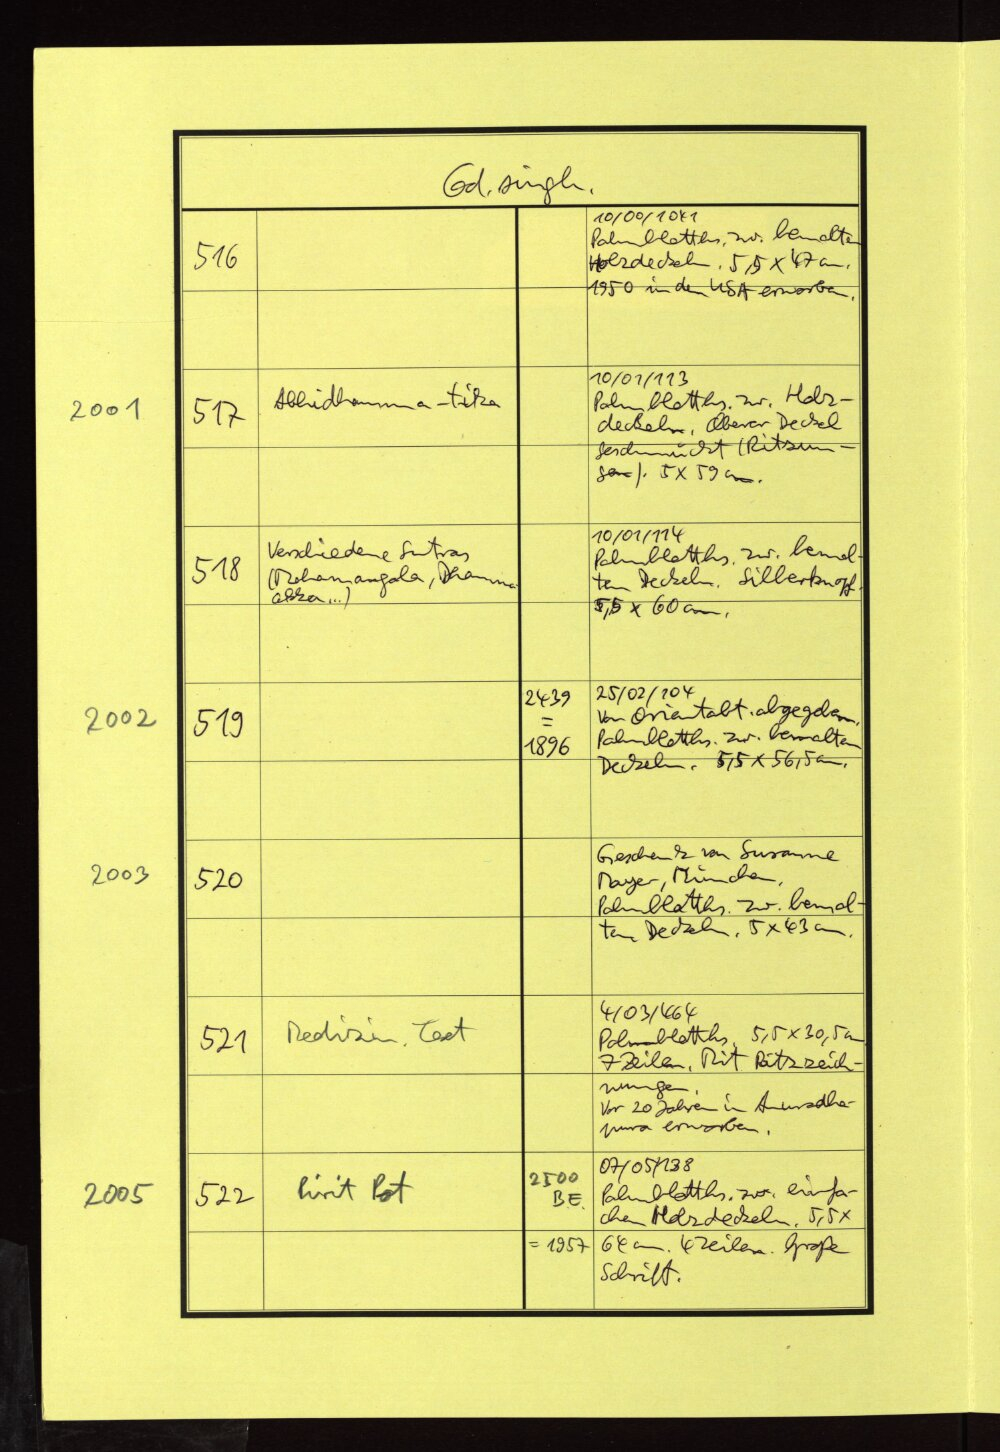 Cod. singh.
516
10/00/1041
Palmblatths. zw. bemalten
Holzdeckeln. 5,5 x 47 cm.
1950 in den USA erworben.
2001
517
Abhidhamma-tika
10/01/113
Palmblatths. zw. Holz-
deckeln. Oberer Deckel
geschmückt (Ritzun-
gen). 5 x 59 cm.
518
Verschiedene Sutras
(Mahamangala, Dhamma-
cakka...)
10/01/114
Palmblatths. zw. bemal-
ten Deckeln. Silberknopf.
5,5 x 60 cm.
2002
519
2439
=
1896
25/02/104
Von Orientabt. abgegeben.
Palmblatths. zw. bemalten
Deckeln. 5,5 x 56,5 cm.
2003
520
Geschenk von Susanne
Mayer, München.
Palmblatths. zw. bemal-
ten Deckeln. 5 x 43 cm.
521
Medizin. Text
4/03/464
Palmblatths. 5,5 x 30,5 cm
7 Zeilen. Mit Ritzzeich-
nungen.
Vor 20 Jahren in Anuradha-
pura erworben.
2005
522
Pirit Pot
2500
B.E.
= 1957
07/05/138
Palmblatths. zw. einfa-
chen Holzdeckeln. 5,5 x
64 cm. 4 Zeilen. Große
Schrift.